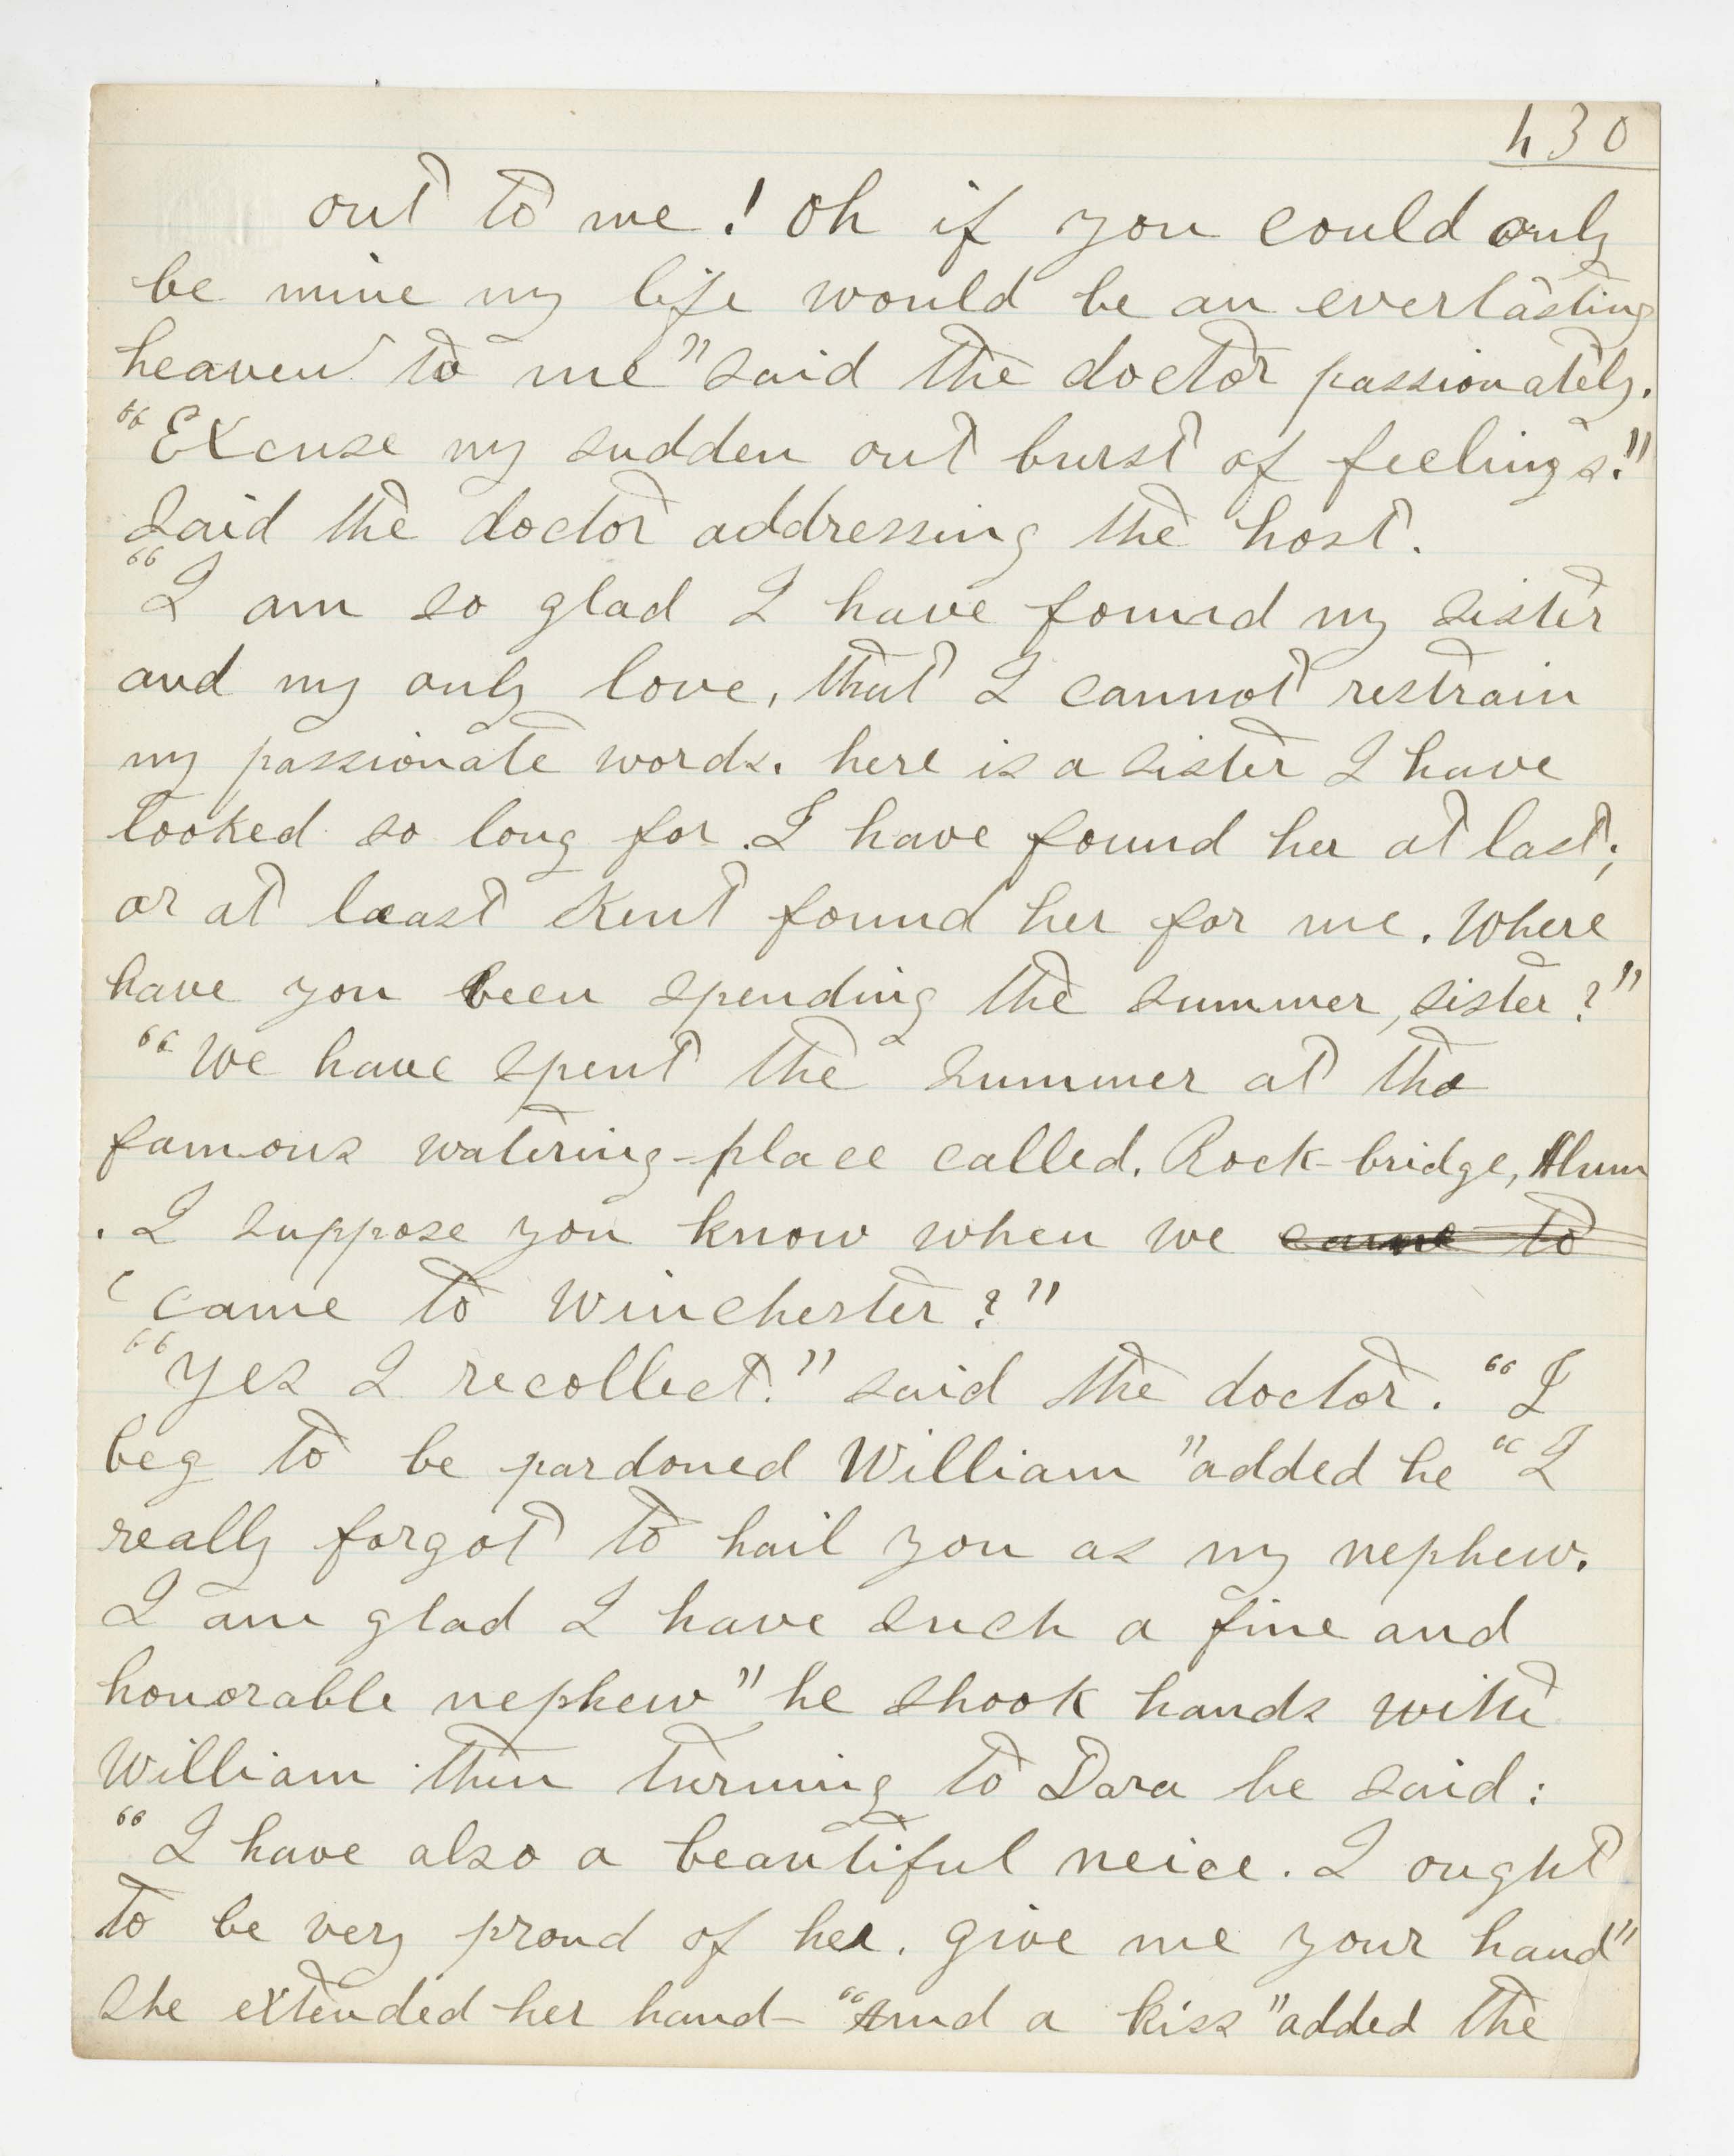 430
out to me! Oh if you could only
be mine my life would be an everlasting
heaven to me" said the doctor passionately.
"Excuse my sudden out burst of feelings."
said the doctor addressing the host.
"I am so glad I have found my sister
and my only love, that I cannot restrain
my passionate words. here is a sister I have
looked so long for. I have found her at last;
or at least Kent found her for me. Where
have you been spending the summer, sister?"
"We have spent the summer at the
famous watering-place called. Rock-bridge, Alum
. I suppose you know when we came to
came to Winchester?"
"Yes I recollect." said the doctor. "I
beg to be pardoned William" added he "I
really forgot to hail you as my nephew.
I am glad I have such a fine and
honorable nephew" he shook hands with
William then turning to Dora he said:
"I have also a beautiful neice. I ought
to be very proud of her. give me your hand"
She extended her hand- "And a kiss" added the